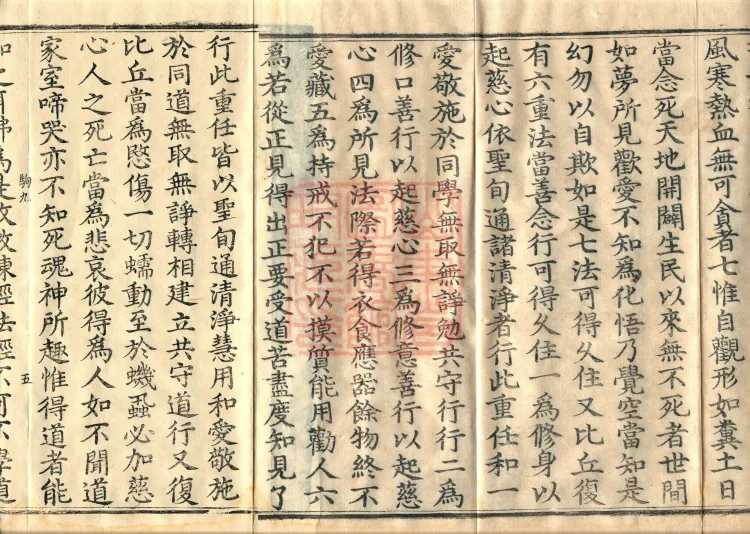 風寒熱血無可貪者七惟自觀形如糞土日
當念死天地開闢生民以來無不死者世間
如夢所見歡愛不知為化悟乃覺空當知是
幻勿以自欺如是七法可得久住又比丘復
有六重法當善念行可得久住一為修身以
起慈心依聖旬通諸清淨者行此重任和一
愛敬施於同學無取無諍勉共守行行二為
修口善行以起慈心三為修意善行以起慈
心四為所見法際若得衣食應器餘物終不
愛藏五為持戒不犯不以摸質能用勸人六
為若從正見得出正要受道苦盡度知見了
行此重任皆以聖旬通清淨慧用和愛敬施
於同道無取無諍轉相建立共守道行又復
比丘當為愍傷一切蠕動至於蟣蝨必加慈
心人之死亡當為悲哀彼得為人如不聞道
家室啼哭亦不知死魂神所趣惟得道者能
駒九
五